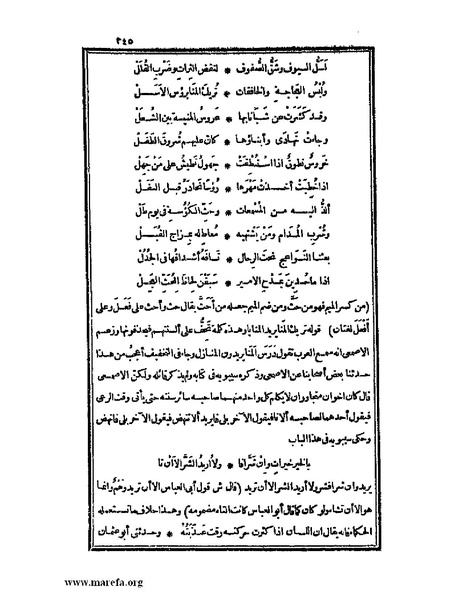 ٢٤٥
لسل السيوف وشق الصفوف * لنقض الترات وضرب القلل
ولبس العجاجة والخافقات * تريك المنا برؤس الاسل
وقد كشرت عن شبا نابها * عروس المنية بين الشعل
وجاءت تهادى وأبناؤها * كأن عليهم شروق الطفل
خروس نطوق اذا استنطقت * جهول تطيش على من جهل
اذا خطبت أخذت مهرها * رؤسا تحادر قبل النفل
ألذ اليه من المسمعات * وحث الكؤسة في يوم طل
وشرب المدام ومن يشتهيه * معاط له بمزاج القبل
بعثنا النواعج تحت الرحال * تسافه أشداقها في الجدل
اذا ما حدين بمدح الامير * سبقن لحاظ المحث العجل
(من كسر الميم فهو من حث ومن ضم الميم جعله من أحث يقال حث وأحث على فعل وعلى
أفعل لغتان) قوله تريك المنا يريد المنايا وهذه كلمة تخف على ألسنتهم فيحذفونها وزعم
الاصمعي انه سمع العرب تقول درس المنا يريدون المنازل وجاء في التخفيف أعجب من هذا
حدثنا بعض أصحابنا عن الاصمعي وذكره سيبويه في كتابه ولم يذكر قائله ولكن الاصمعي
قال كان اخوان متجاوران لا يكلم كل واحد منهما صاحبه سائر سنته حتى يأتي وقت الرعي
فيقول أحدهما لصاحبه ألا تا فيقول الآخر بلى فا يريد ألا تنهض فيقول الآخر بلى فانهض
وحكى سيبويه في هذا الباب
بالخير خيرات وان شرا فا * ولا أريد الشر الا أن تا
يريد وان شرا فشر ولا أريد الشر الا أن تريد (قال ش قول أبي العباس الا أن تريد وهم وانما
هو الا أن تشا ولو كان كما قال أبو العباس كانت التاء مضمومة) وهذا خلاف ما تستعمله
الحكماء فانه يقال ان اللسان اذا كثرت حركته رقت عذبته * وحدثني أبو عثمان
www.marefa.org